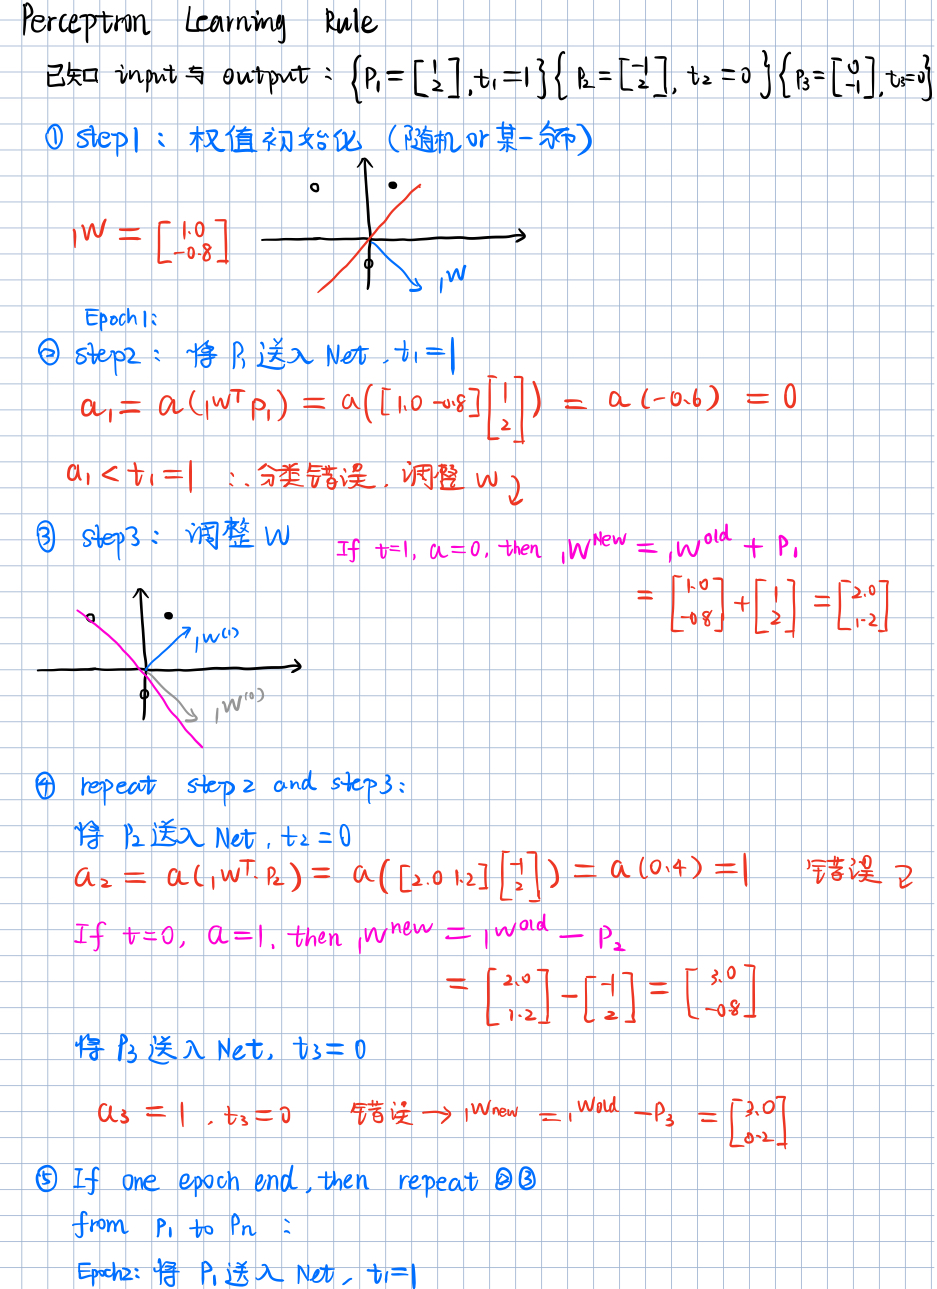 Perceptron Learning Rule
已知 input 与 output : {P₁ = [1 2], t₁ = 1} {P₂ = [-1 2], t₂ = 0} {P₃ = [0 -1], t₃ = 0}
① step1 : 权值初始化 (随机 or 某一分布)
₁W = [1.0 -0.8]
₁W
Epoch1:
② step2 : 将 P₁ 送入 Net, t₁ = 1
a₁ = a(₁Wᵀ p₁) = a([1.0 -0.8][1 2]) = a(-0.6) = 0
a₁ < t₁ = 1 ∴ 分类错误, 调整 W
③ step3 : 调整 W
If t=1, a=0, then ₁W^New = ₁W^old + P₁
= [1.0 -0.8] + [1 2] = [2.0 1.2]
₁W⁽¹⁾
₁W⁽⁰⁾
④ repeat step2 and step3:
将 P₂ 送入 Net, t₂ = 0
a₂ = a(₁Wᵀ·P₂) = a([2.0 1.2][-1 2]) = a(0.4) = 1 错误
If t=0, a=1, then ₁W^new = ₁W^old - P₂
= [2.0 1.2] - [-1 2] = [3.0 -0.8]
将 P₃ 送入 Net, t₃ = 0
a₃ = 1, t₃ = 0 错误 → ₁W^new = ₁W^old - P₃ = [3.0 0.2]
⑤ If one epoch end, then repeat ②③
from P₁ to Pn :
Epoch2: 将 P₁ 送入 Net, t₁=1